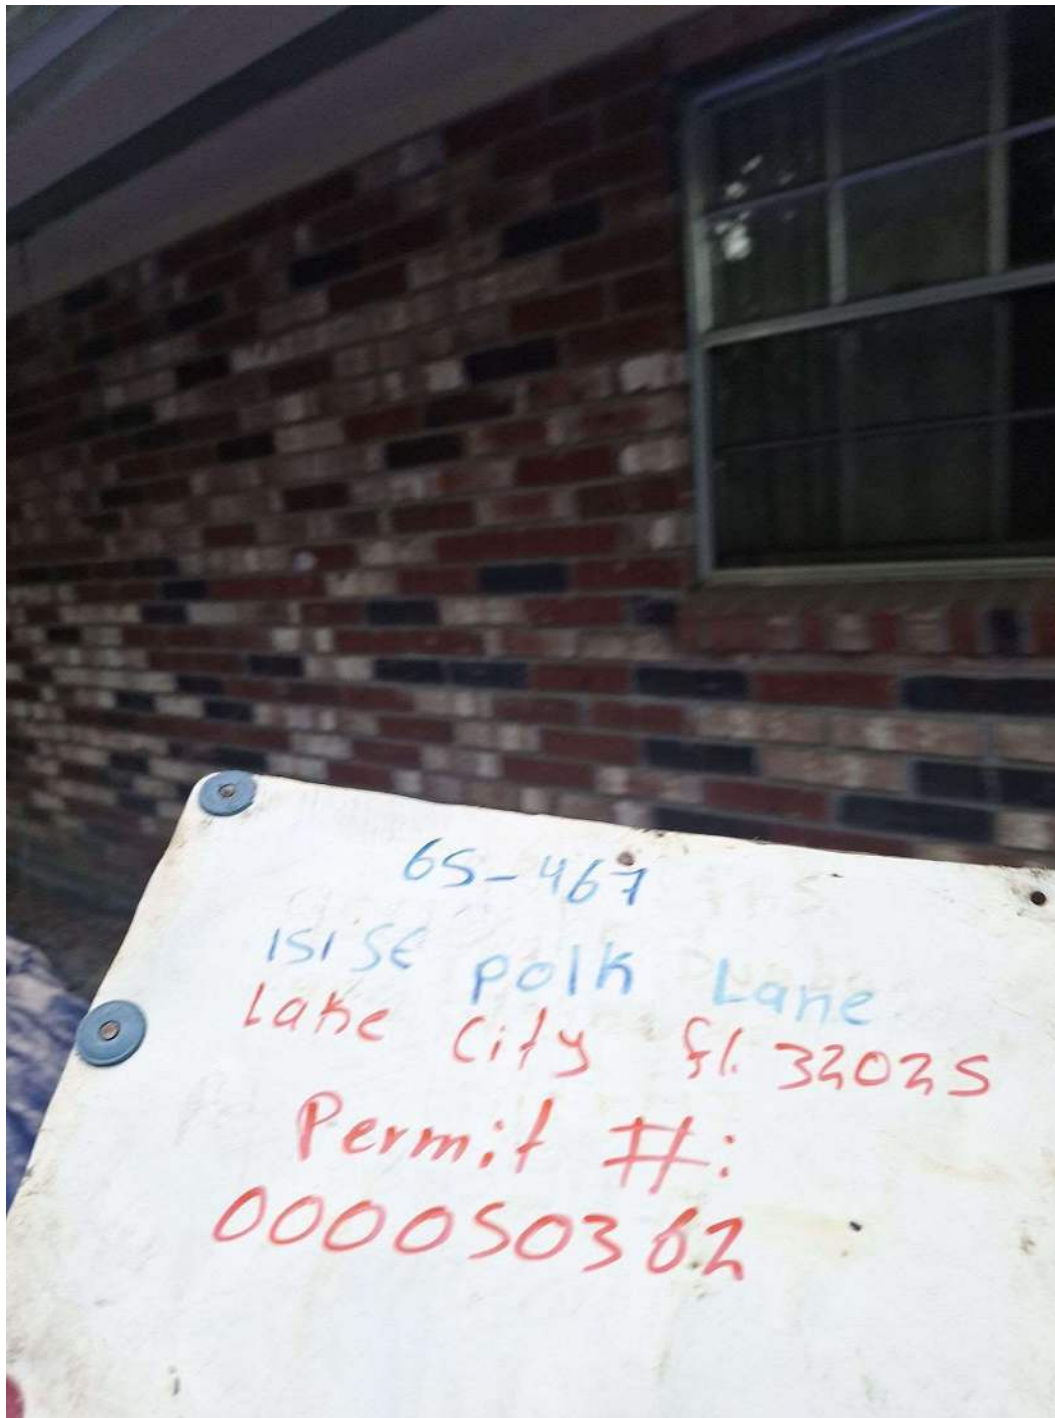 65-467
151 SE Polk Lane
Lake City fl. 32025
Permit #:
000050362